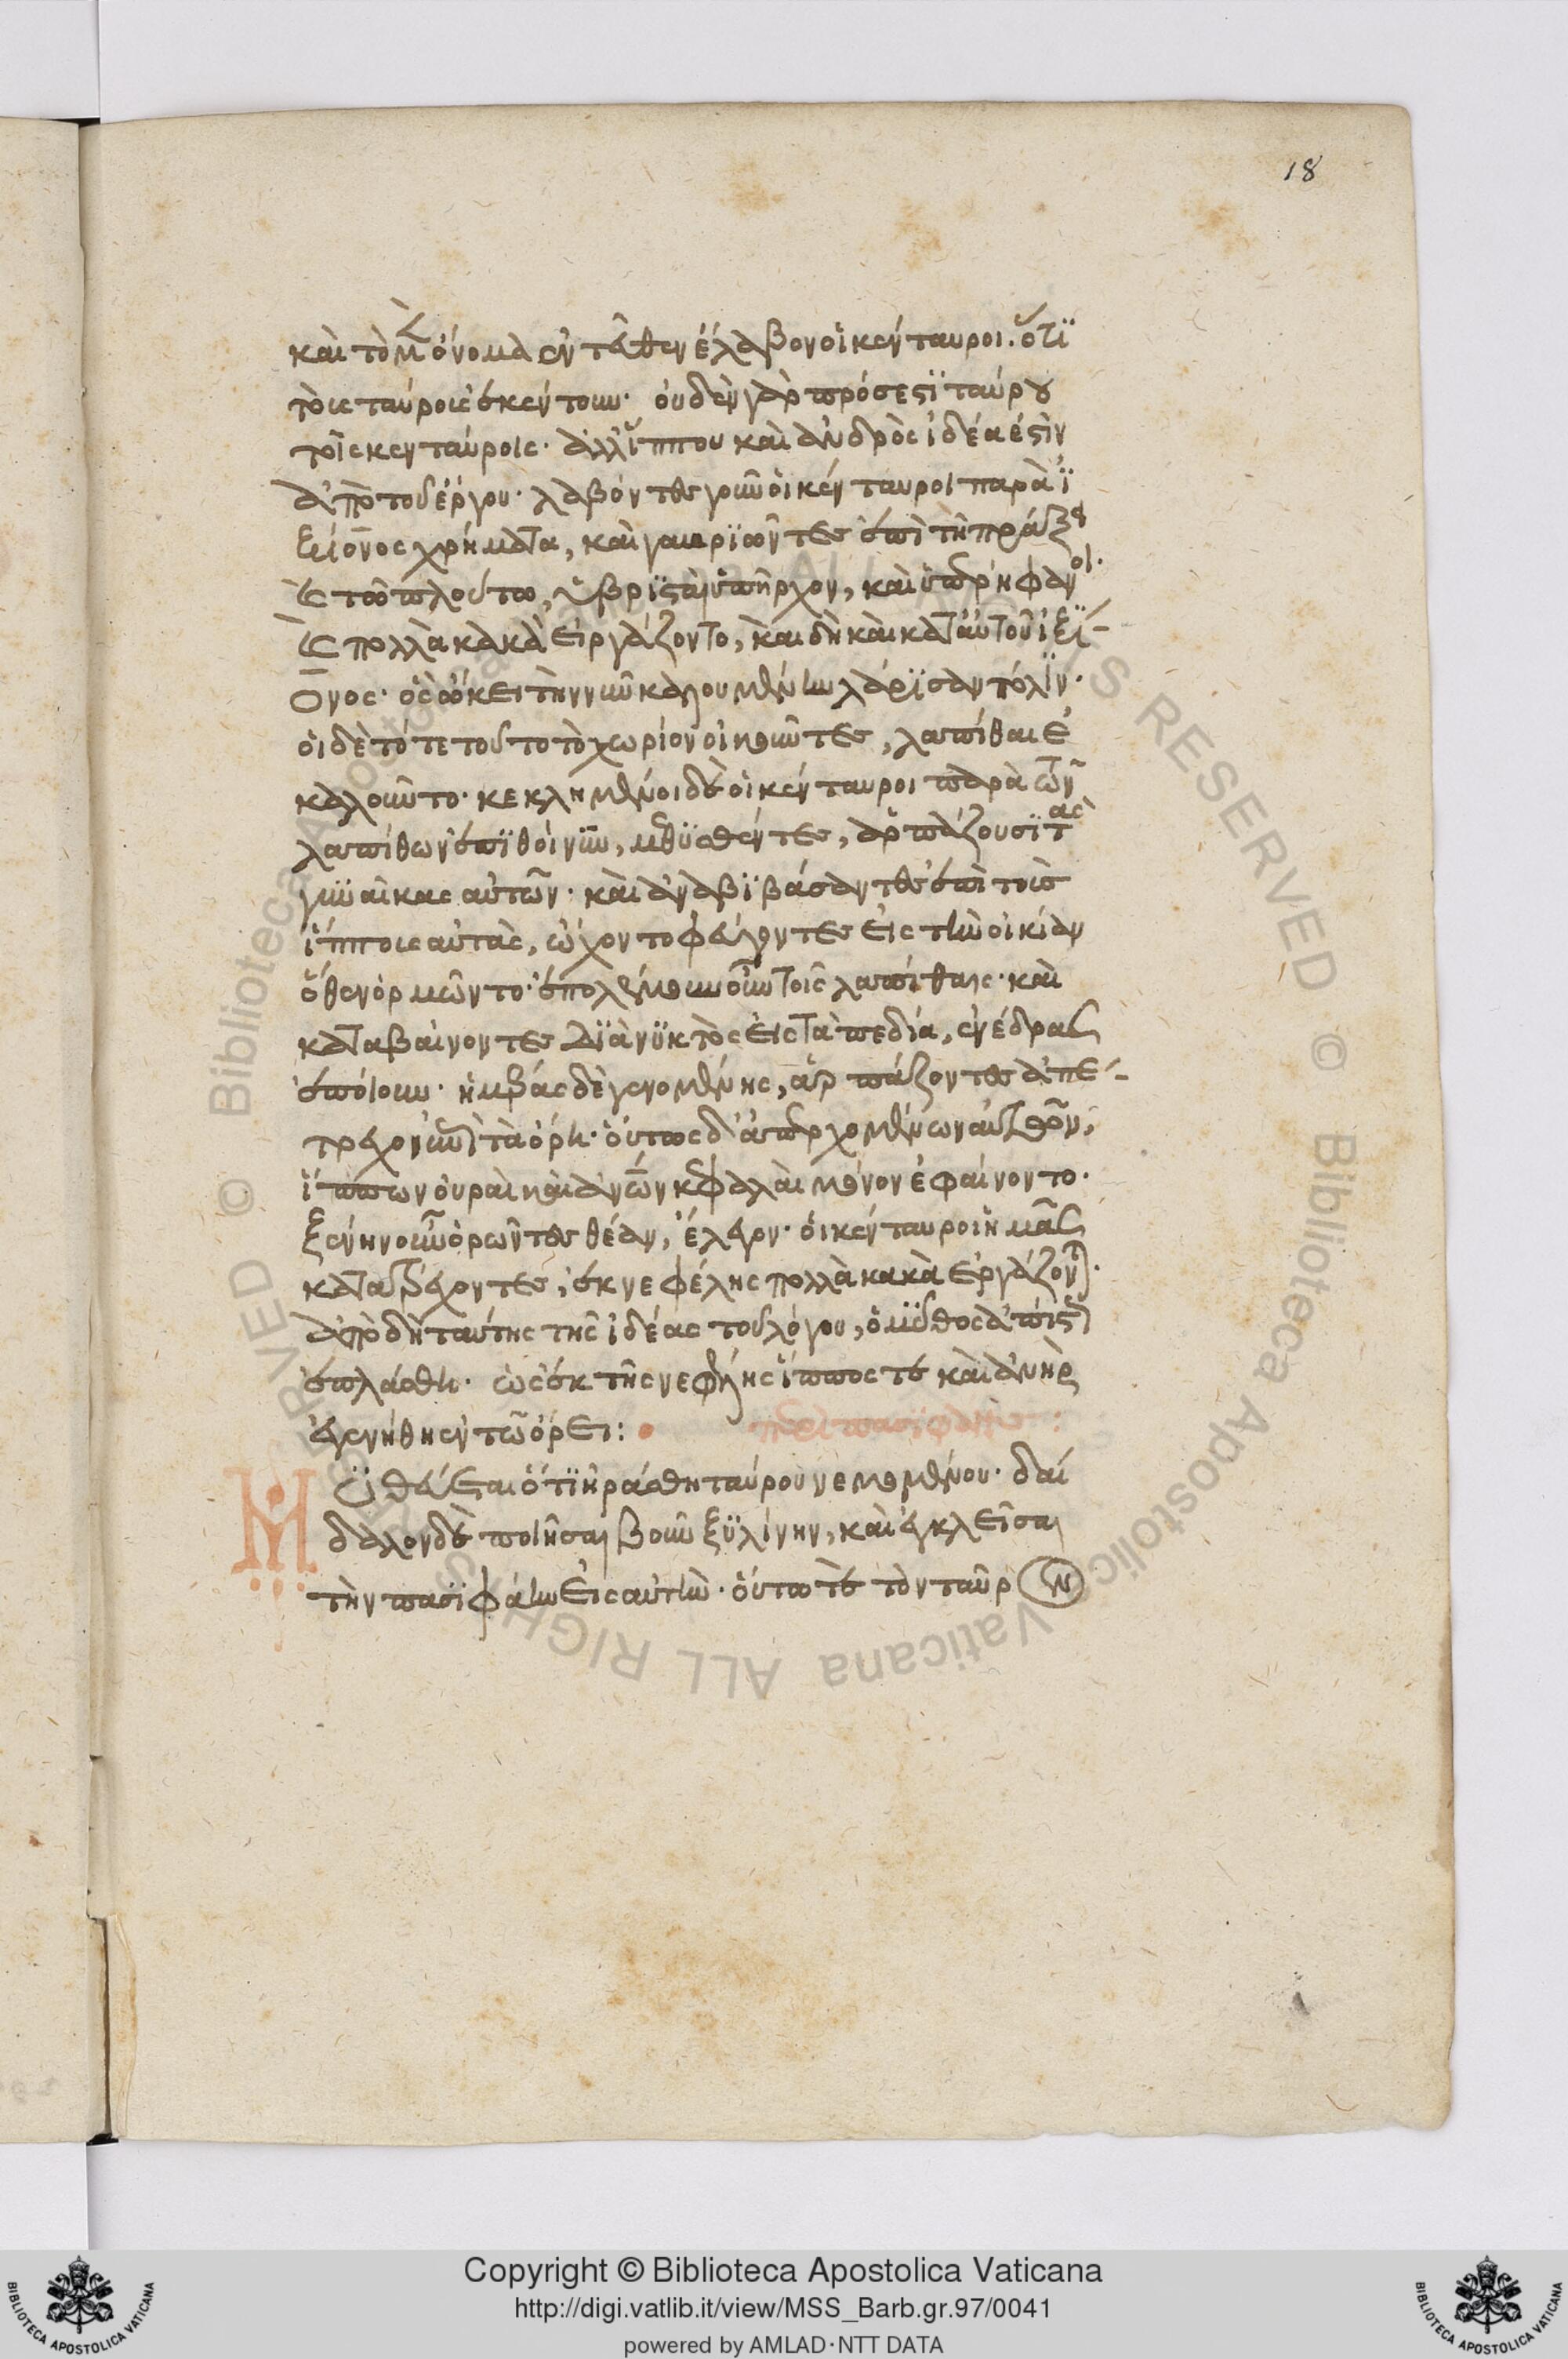 18
καὶ τὸ μὲν ὄνομα ἐντεῦθεν ἔλαβον οἱ κένταυροι. ὅτι
τοὺς ταύρους ἐκέντουν· οὐδὲν γὰρ πρόσεστι ταύρου
τοῖς κενταύροις· ἀλλ' ἵππου καὶ ἀνδρὸς ἰδέα ἐστὶν
ἀπὸ τοῦ ἔργου· λαβόντες γοῦν οἱ κένταυροι παρὰ ἰ
ξίονος χρήματα, καὶ γαυριῶντες ἐπὶ τῇ πράξει
καὶ τῷ πλούτῳ, ὑβρισταὶ ὑπῆρχον, καὶ ὑπερήφανοι.
καὶ πολλὰ κακὰ εἰργάζοντο, καὶ δὴ καὶ κατ' αὐτοῦ ἰξί-
ονος· ὃς ᾤκει τὴν νῦν καλουμένην λάρισαν πόλιν·
οἱ δὲ τότε τοῦτο τὸ χωρίον οἰκοῦντες, λαπίθαι ἐ
καλοῦντο· κεκλημένοι δὲ οἱ κένταυροι παρὰ τῶν
λαπιθῶν ἐπὶ θοίνην, μεθυσθέντες, ἁρπάζουσι τὰς
γυναῖκας αὐτῶν· καὶ ἀναβιβάσαντες ἐπὶ τοὺς
ἵππους αὐτὰς, ᾤχοντο φεύγοντες εἰς τὴν οἰκίαν
ὅθεν ὁρμῶντο· ἐπολέμουν οὖν τοῖς λαπίθαις· καὶ
καταβαίνοντες διὰ νυκτὸς εἰς τὰ πεδία, ἐνέδρας
ἐποίουν· ἡμέρας δὲ γενομένης, ἁρπάζοντες ἀπέ-
τρεχον εἰς τὰ ὄρη· οὕτως δ' ἀπερχομένων αὐτῶν,
ἵππων οὐραὶ καὶ ἀνθρώπων κεφαλαὶ μόνον ἐφαίνοντο·
ξένην οὖν ὁρῶντες θέαν, ἔλεγον· οἱ κένταυροι ἡμᾶς
κατατρέχοντες, ἐκ νεφέλης πολλὰ κακὰ ἐργάζονται·
ἀπὸ δὴ ταύτης τῆς ἰδέας τοῦ λόγου, ὁ μῦθος ἀπίστως
ἐπλάσθη· ὡς ἐκ τῆς νεφέλης ἵππος τε καὶ ἀνὴρ
ἐγενήθη ἐν τῷ ὄρει: περὶ πασιφάης:
Μυθεύεται ὅτι ἠράσθη ταύρου νεμομένου· δαί
δαλον δὲ ποιῆσαι βοῦν ξυλίνην, καὶ ἐγκλεῖσαι
τὴν πασιφάην εἰς αὐτήν· οὕτω τε τὸν ταῦρον
Copyright © Biblioteca Apostolica Vaticana
http://digi.vatlib.it/view/MSS_Barb.gr.97/0041
powered by AMLAD·NTT DATA